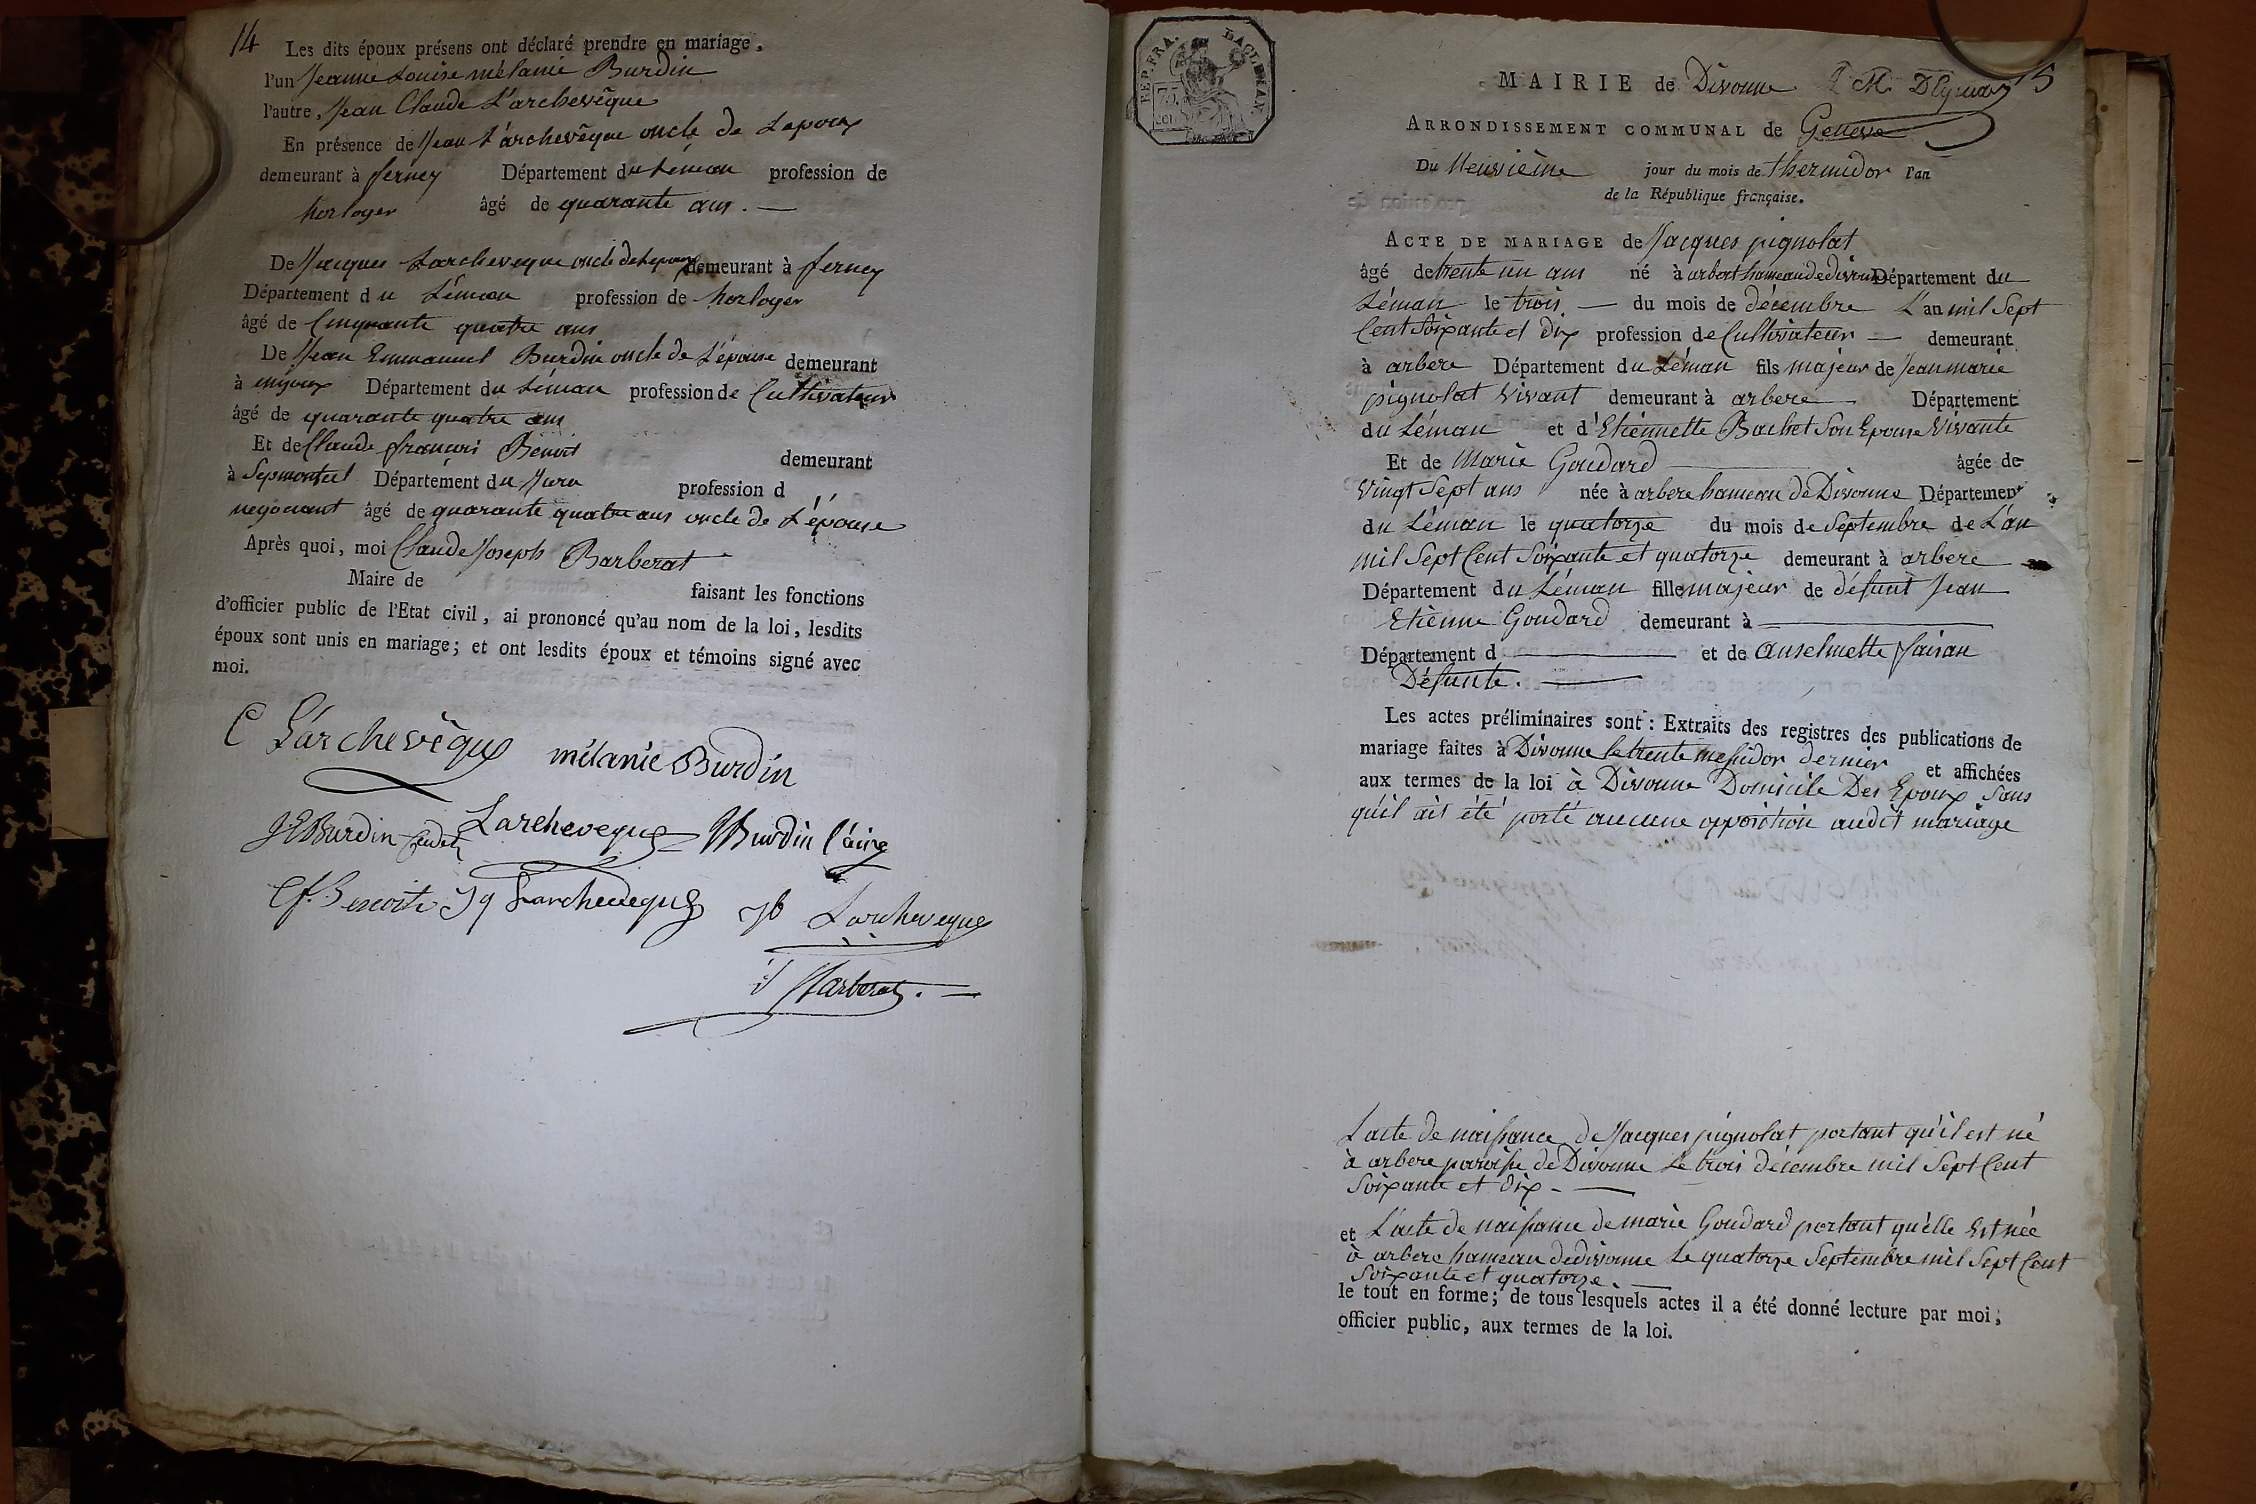 14
Les dits époux présens ont déclaré prendre en mariage,
l'un Jeanne Louise mélanie Burdin
l'autre, Jean Claude L'archevêque
En présence de Jean L'archevêque oncle de Lepoux
demeurant à ferney Département du Léman profession de
horloger âgé de quarante ans.
De Jacques Larcheveque oncle de Lepoux demeurant à ferney
Département du Léman profession de horloger
âgé de Cinquante quatre ans
De Jean Emmanuel Burdin oncle de L'épouse demeurant
à mijoux Département du Léman profession de Cultivateur
âgé de quarante quatre ans
Et de Claude françois Benoit demeurant
à Septmontcel Département du Jura profession d
negociant âgé de quarante quatre ans oncle de L'épouse
Après quoi, moi Claude Joseph Barberat
Maire de faisant les fonctions
d'officier public de l'Etat civil, ai prononcé qu'au nom de la loi, lesdits
époux sont unis en mariage; et ont lesdits époux et témoins signé avec
moi.
C L'archevêque mélanie Burdin
JE Burdin cadet Larcheveque Burdin l'ainé
Cf. Benoite Jq Larcheveque Larcheveque
Barberat.
REP. FRA.
75.
CEN.
MAIRIE de Divonne 15
ARRONDISSEMENT COMMUNAL de Geneve
Du Neuvième jour du mois de thermidor l'an
de la République française.
ACTE DE MARIAGE de Jacques pignolat
âgé de trente un ans né à arbere hameau de divonne Département du
Léman le trois du mois de décembre L'an mil Sept
Cent Soixante et dix profession de Cultivateur demeurant
à arbere Département du Léman fils majeur de Jean marie
pignolat Vivant demeurant à arbere Département
du Léman et d'Etiennette Bachet Son Epouse Vivante
Et de Marie Goudard âgée de
Vingt Sept ans née à arbere hameau de Divonne Département
du Léman le quatorze du mois de Septembre de L'an
mil Sept Cent Soixante et quatorze demeurant à arbere
Département du Léman fille majeur de défunt Jean
Etienne Goudard demeurant à
Département d et de anselmette
Défunte.
Les actes préliminaires sont: Extraits des registres des publications de
mariage faites à Divonne le trente messidor dernier et affichées
aux termes de la loi à Divonne Domicile Des Epoux Sans
qu'il ait été porté aucune opposition audit mariage
L'acte de naissance de Jacques pignolat portant qu'il est né
à arbere paroisse de Divonne Le trois décembre mil Sept Cent
Soixante et dix -
et L'acte de naissance de marie Goudard portant qu'elle Est née
à arbere hameau de divonne Le quatorze Septembre mil Sept Cent
Soixante et quatorze.
le tout en forme; de tous lesquels actes il a été donné lecture par moi,
officier public, aux termes de la loi.